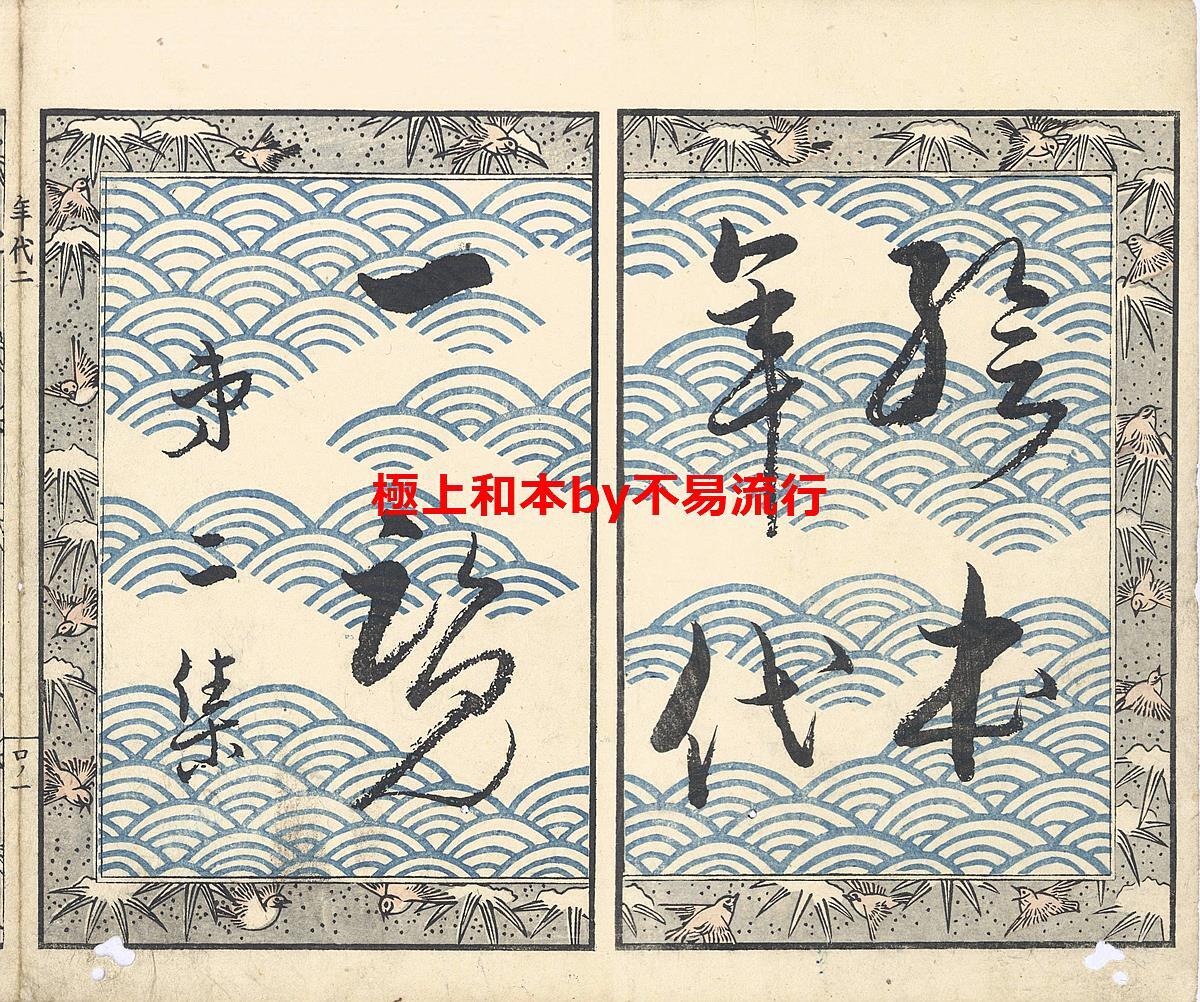 絵本
年代
一覧
第二集
年代二
口ノ一
極上和本by不易流行